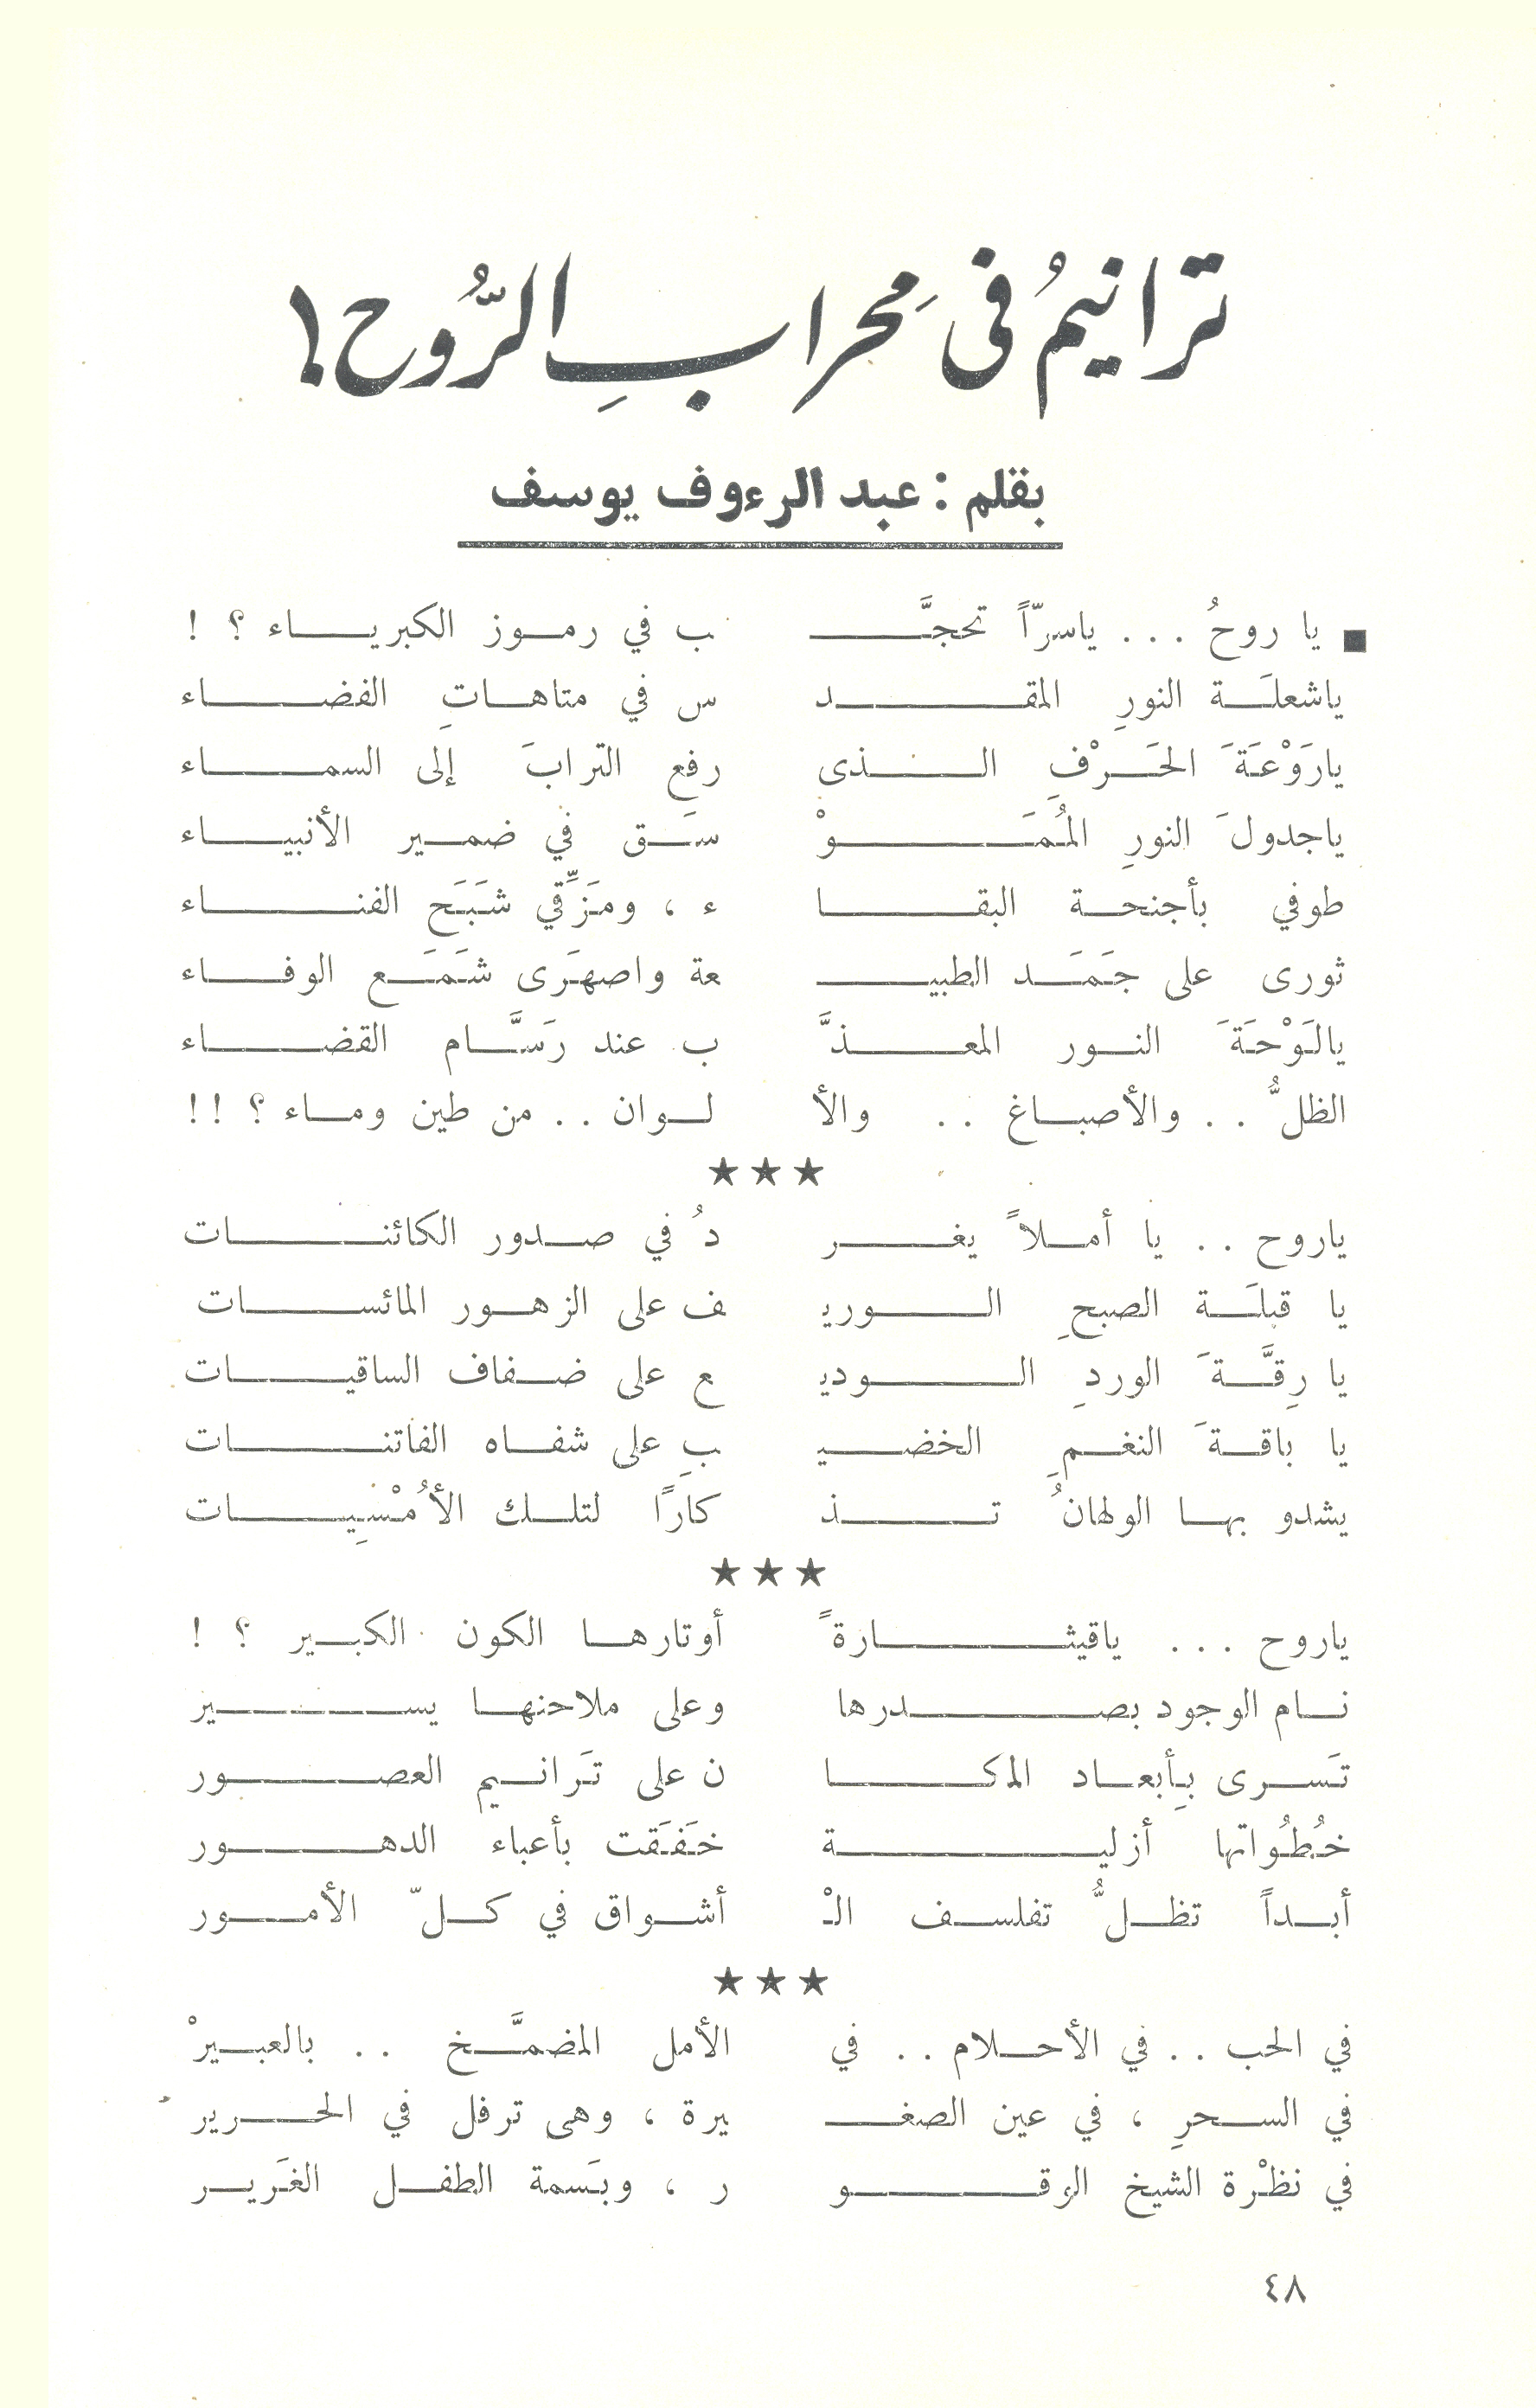 ترانيمُ فى مِحرابِ الرُّوح !
بقلم : عبد الرءوف يوسف
■ يا روحُ . . . ياسرّاً تحجَّـ ب في رموز الكبرياء ؟ !
ياشعلَة النورِ المقد س في متاهاتِ الفضاء
يارَوْعَةَ الحَرْفِ الذى رفع الترابَ إلى السماء
ياجدولَ النورِ المُمَوْ سَق في ضمير الأنبياء
طوفي بأجنحة البقا ء ، ومَزِّقي شَبَح الفناء
ثورى على جَمَد الطبيـ عة واصهَرى شَمَع الوفاء
يالَوْحَةَ النور المعذَّ ب عند رَسَّام القضاء
الظلُّ . . والأصباغ . . والأ لوان . . من طين وماء ؟ ! !
★ ★ ★
ياروح . . يا أملاً يغر دُ في صدور الكائنات
يا قبلَة الصبحِ الوريـ ف على الزهور المائسات
يا رِقَّةَ الوردِ الوديـ ع على ضفاف الساقيات
يا باقةَ النغمِ الخضيـ بِ على شفاه الفاتنات
يشدو بها الولهانُ تذ كارًا لتلك الأُمْسِيات
★ ★ ★
ياروح . . . ياقيثارةً أوتارها الكون الكبير ؟ !
نام الوجود بصدرها وعلى ملاحنها يسير
تَسرى بِأبعاد المكا ن على تَرانيم العصور
خُطُواتها أزلية خَفَقت بأعباء الدهور
أبداً تظلُّ تفلسف الْـ أشواق في كلّ الأمور
★ ★ ★
في الحب . . في الأحلام . . في الأمل المضمَّخ . . بالعبيرْ
في السحرِ ، في عين الصغـ يرة ، وهى ترفل في الحرير
في نظْرة الشيخ الوقو ر ، وبَسمة الطفل الغَرير
٤٨